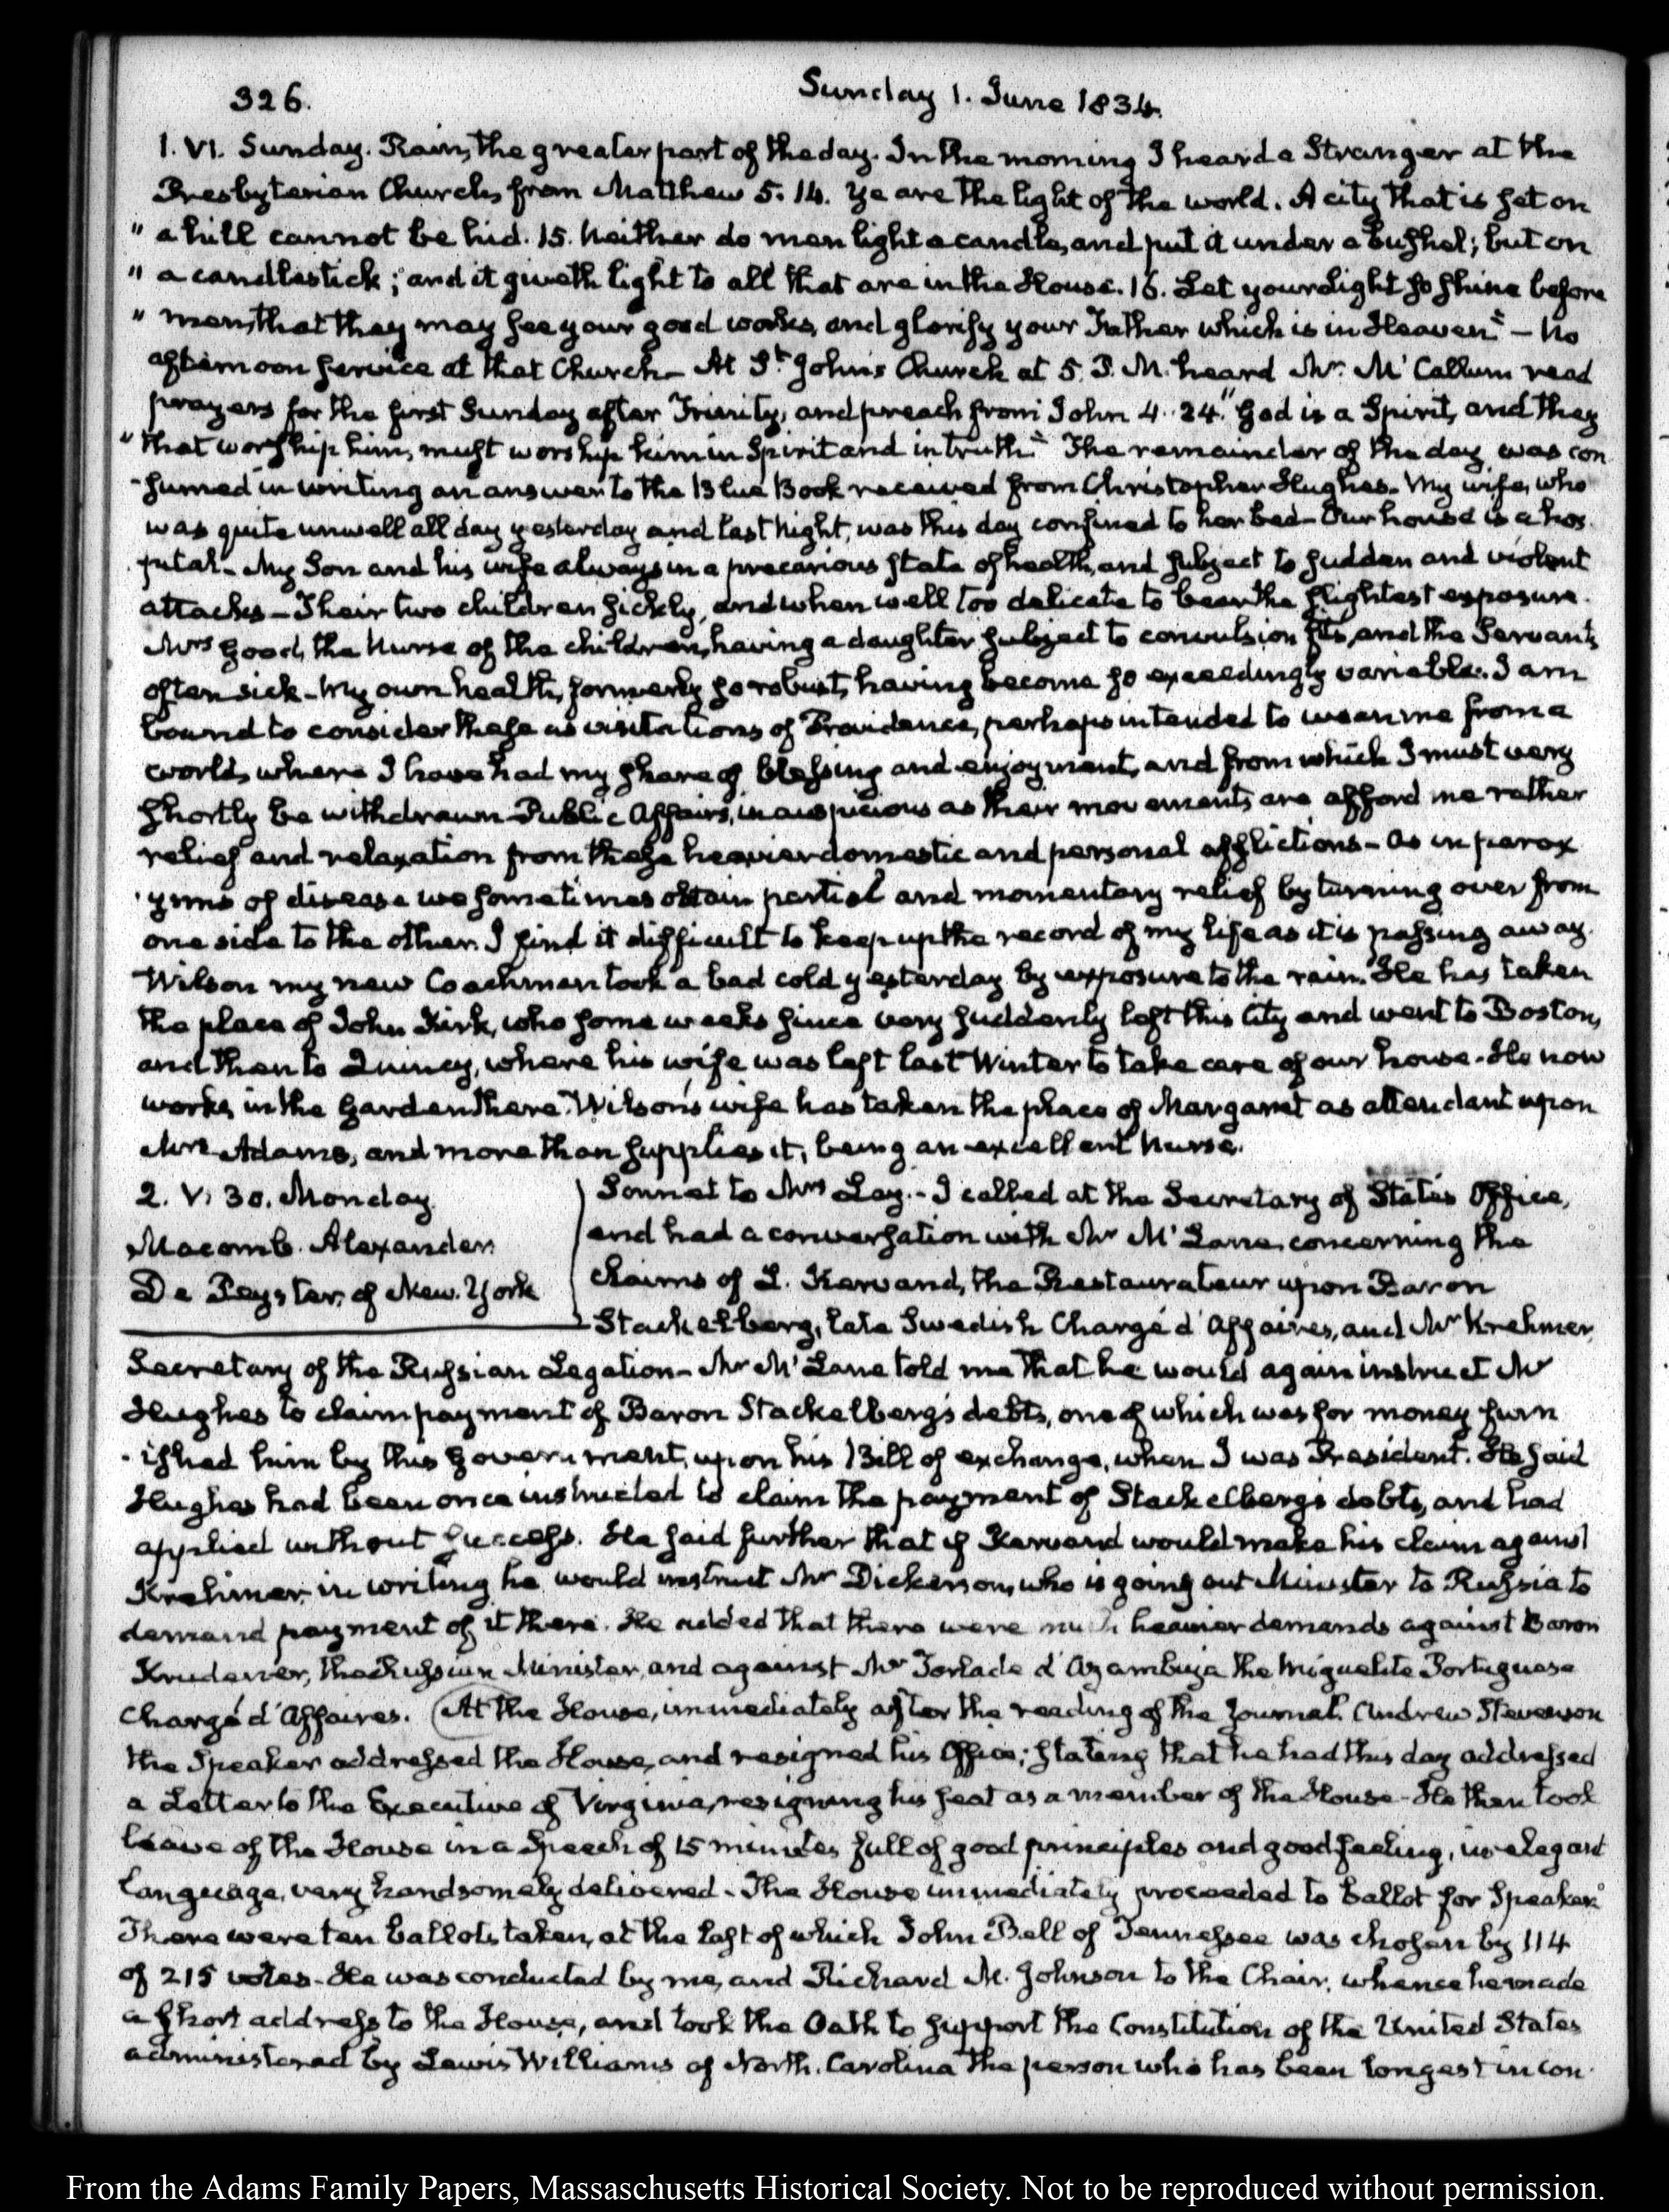 326.
Sunday 1. June 1834.
1. VI. Sunday. Rain, the greater part of the day. In the morning I heard a Stranger at the
Presbyterian Church, from Matthew 5. 14. Ye are the light of the world. A city that is set on
" a hill cannot be hid. 15. Neither do men light a candle, and put it under a bushel; but on
" a candlestick; and it giveth light to all that are in the House. 16. Let your light so shine before
" men, that they may see your good works, and glorify your Father which is in Heaven" – No
afternoon service at that Church – At St. John's Church at 5. P. M. heard Mr. M'Callum read
prayers for the first Sunday after Trinity, and preach from John 4. 24. "God is a Spirit, and they
" that worship him, must worship him in Spirit and in truth." The remainder of the day was con
-sumed in writing an answer to the Blue Book received from Christopher Hughes. My wife, who
was quite unwell all day yesterday and last Night, was this day confined to her bed – Our house is a hos
-pital – My Son and his wife always in a precarious state of health, and subject to sudden and violent
attacks – Their two children sickly, and when well too delicate to bear the slightest exposure.
Mrs Good, the Nurse of the children, having a daughter subject to convulsion fits, and the Servants
often sick – My own health, formerly so robust, having become so exceedingly variable. I am
bound to consider these as visitations of Providence, perhaps intended to wean me from a
world, where I have had my share of blessing and enjoyment, and from which I must very
shortly be withdrawn – Public Affairs, inauspicious as their movements are afford me rather
relief and relaxation from these heavier domestic and personal afflictions – as in parox
-ysms of disease we sometimes obtain partial and momentary relief by turning over from
one side to the other. I find it difficult to keep up the record of my life as it is passing away.
Wilson my new Coachman took a bad cold yesterday by exposure to the rain. He has taken
the place of John Kirk, who some weeks since very suddenly left this City and went to Boston,
and then to Quincy, where his wife was left last Winter to take care of our house. He now
works in the Garden there. Wilson's wife has taken the place of Margaret as attendant upon
Mrs Adams, and more than supplies it, being an excellent Nurse.
2. V. 30. Monday
Macomb. Alexander
De Peyster, of New-York
Sonnet to Mrs Lay. – I called at the Secretary of State's Office,
and had a conversation with Mr M'Lane, concerning the
claims of L. Kervand, the Restaurateur upon Baron
Stackelberg, late Swedish Chargé d'Affaires, and Mr Krehmer,
Secretary of the Russian Legation – Mr M'Lane told me that he would again instruct Mr
Hughes to claim payment of Baron Stackelberg's debts, one of which was for money furn
-ished him by this Government, upon his Bill of exchange, when I was President. He said
Hughes had been once instructed to claim the payment of Stackelberg's debts, and had
applied without success. He said further that if Kervand would make his claim against
Krehmer in writing he would instruct Mr Dickerson, who is going out Minister to Russia to
demand payment of it there. He added that there were much heavier demands against Baron
Krudener, the Russian Minister, and against Mr Torlade d'Azambuja the Miguelite Portuguese
Chargé d'Affaires. At the House, immediately after the reading of the Journal. Andrew Stevenson
the Speaker addressed the House, and resigned his Office; stating that he had this day addressed
a Letter to the Executive of Virginia, resigning his seat as a member of the House – He then took
leave of the House in a Speech of 15 minutes full of good principles and good feeling, in elegant
language, very handsomely delivered – The House immediately proceeded to ballot for Speaker.
There were ten ballots taken, at the last of which John Bell of Tennessee was chosen by 114
of 215 votes – He was conducted by me, and Richard M. Johnson to the Chair, whence he made
a short address to the House, and took the Oath to support the Constitution of the United States
administered by Lewis Williams of North-Carolina the person who has been longest in con-
From the Adams Family Papers, Massachusetts Historical Society. Not to be reproduced without permission.